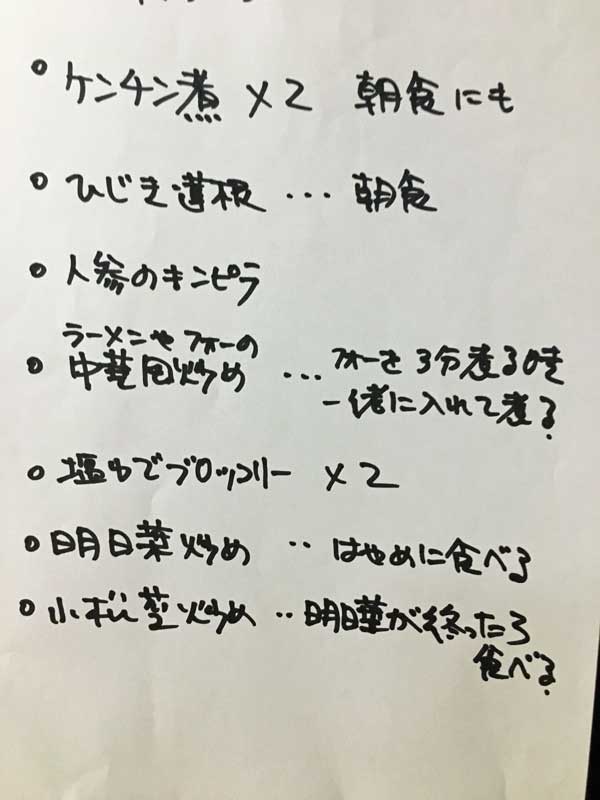 • ケンチン煮 ×2 朝食にも
• ひじき蓮根 ... 朝食
• 人参のキンピラ
ラーメンやフォーの
• 中華風炒め ... フォーを3分煮る時
一緒に入れて煮る。
• 塩ゆでブロッコリー ×2
• 明日葉炒め ‥ はやめに食べる
• 小松菜炒め ‥ 明日葉が終ったら
食べる。